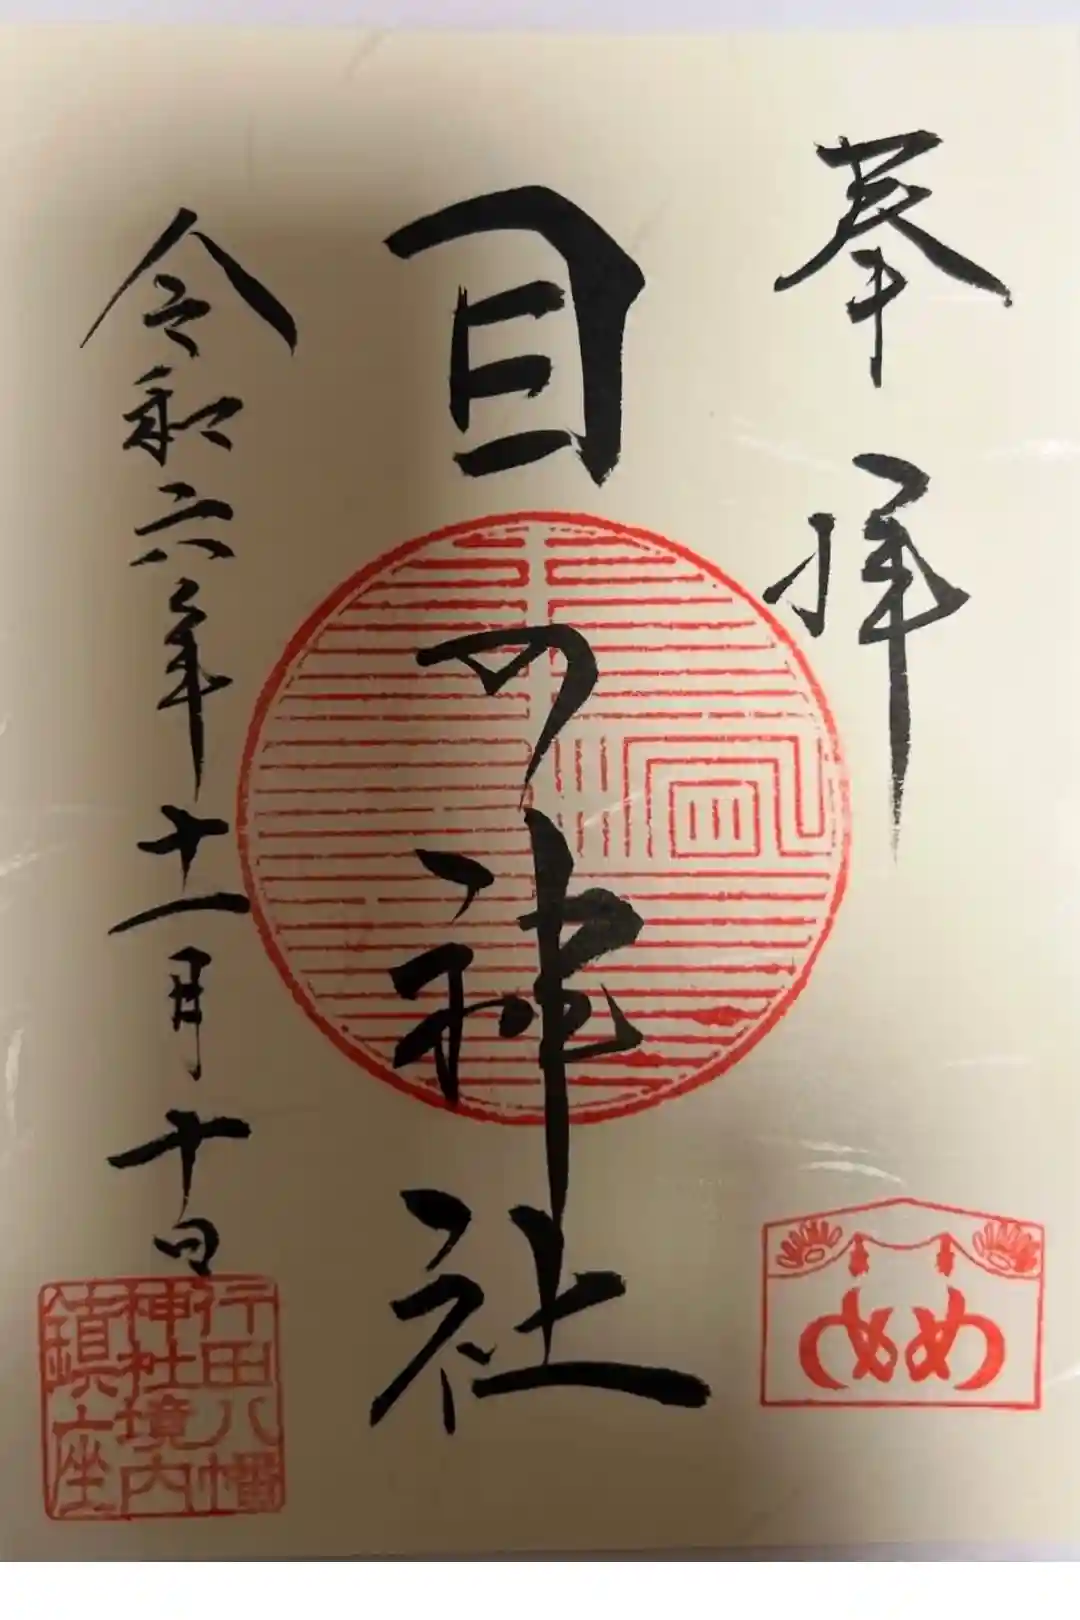 奉拝
目の神社
令和六年十一月十日
行田八幡
神社境内
鎮座
めめ